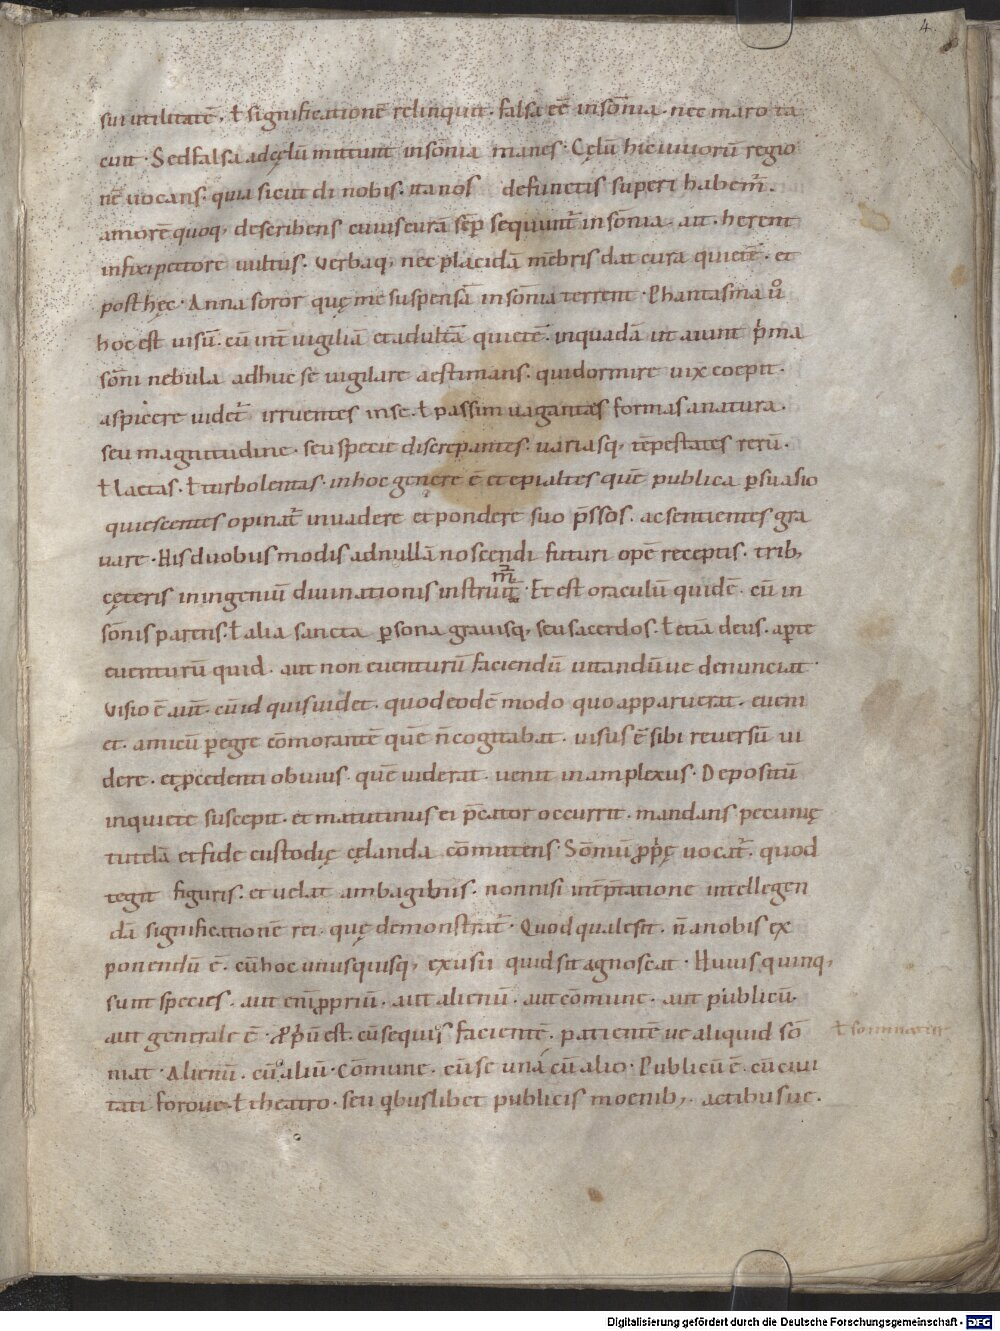 4
sui utilitatē, ł significationē relinquit. falsa eē insōnia. nec maro ta
cuit. Sed falsa ad cęlū mittunt insōnia manes. Cęlū hic uiuorū regio
nē uocans. quia sicut di nobis. ita nos defunctis superi habem̄.
amorē quoq, describens cuius curā sēp sequunt̄ insōnia. ait. herent
infixi pectore uultus. Verbaq, nec placidā mēbris dat cura quietē. et
post hęc. Anna soror quę me suspensā insōnia terrent. Phantasma ů
hoc est uisū. cū int̄ uigiliā et adultā quietē. in quadā ut aiunt p̄ma
sōni nebula adhuc se uigilare aestimans. qui dormire uix coepit.
aspicere uidet̄ irruentes in se. ł passim uagantes formas a natura.
seu magnitudine. seu specie discrepantes. uariasq, tēpestates rerū.
ł laetas. ł turbolentas. in hoc genere ē et epialtes quē publica p̱suasio
quiescentes opinat̄ inuadere et pondere suo p̄ssos. ac sentientes gra
uare. His duobus modis ad nullā noscendi futuri opē receptis. trib,
cęteris in ingeniū diuinationis instruit̄. Et est oraculū quidē. cū in
m̄
sōnis parens. ł alia sancta p̱sona grauisq, seu sacerdos. ł etiā deus. ap̱te
euenturū quid. aut non euenturū faciendū uitandū ue denunciat.
Visio ē aut̄. cū id quis uidet. quod eodē modo quo apparuerat. eueni
et. amicū p̱egre cōmorantē quē n̄ cogitabat. uisus ē sibi reuersū ui
dere. et p̱cedenti obuius. quē uiderat. uenit in amplexus. Depositū
in quiete suscepit. et matutinus ei p̄cator occurrit. mandans pecunię
tutelā et fide custodię cęlanda cōmittens. Sōniū p̱p̱ę uocat̄. quod
tegit figuris. et uelat ambagibus. non nisi int̄p̄tatione intellegen
dā significationē rei. quę demonstrat̄. Quod quale sit. n̄ a nobis ex
ponendū ē. cū hoc unusquisq, ex usu quid sit agnoscat. Huius quinq,
sunt species. aut enī p̱priū. aut alienū. aut cōmune. aut publicū.
aut generale ē. P̱p̱ū est. cū se quis facientē. patientē ue aliquid sō
ł somniatur
niat. Alienū. cū aliū. Cōmune. cū se una cū alio. Publicū ē. cū ciui
tati foroue ł theatro. seu q̇buslibet publicis moenib,. actibusue.
Digitalisierung gefördert durch die Deutsche Forschungsgemeinschaft - DFG